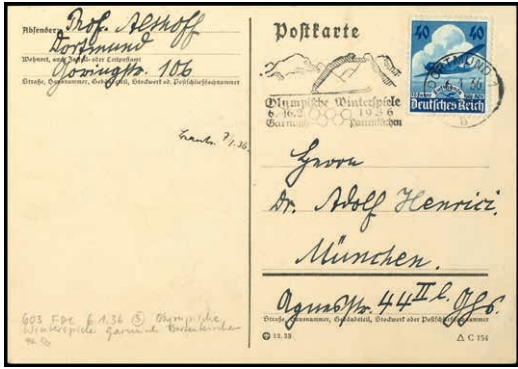 Absender:
Prof. Althoff
Dortmund
Wohnort, auch Zustell- oder Leitpostamt
Göringstr. 106
Straße, Hausnummer, Gebäudeteil, Stockwerk od. Postschließfachnummer
7/1.36.
603 FDC 6.1.36 ⑤ Olympische
Winterspiele Garmisch Partenkirchen
Postkarte
Olympische Winterspiele
6.-16.2. 1936
Garmisch Partenkirchen
40 40
Deutsches Reich
DORTMUND
Herrn
Dr. Adolf Henrici.
München.
Agnesstr. 44 II l.
Straße, Hausnummer, Gebäudeteil, Stockwerk oder Postschließfachnummer
12. 33
C 154